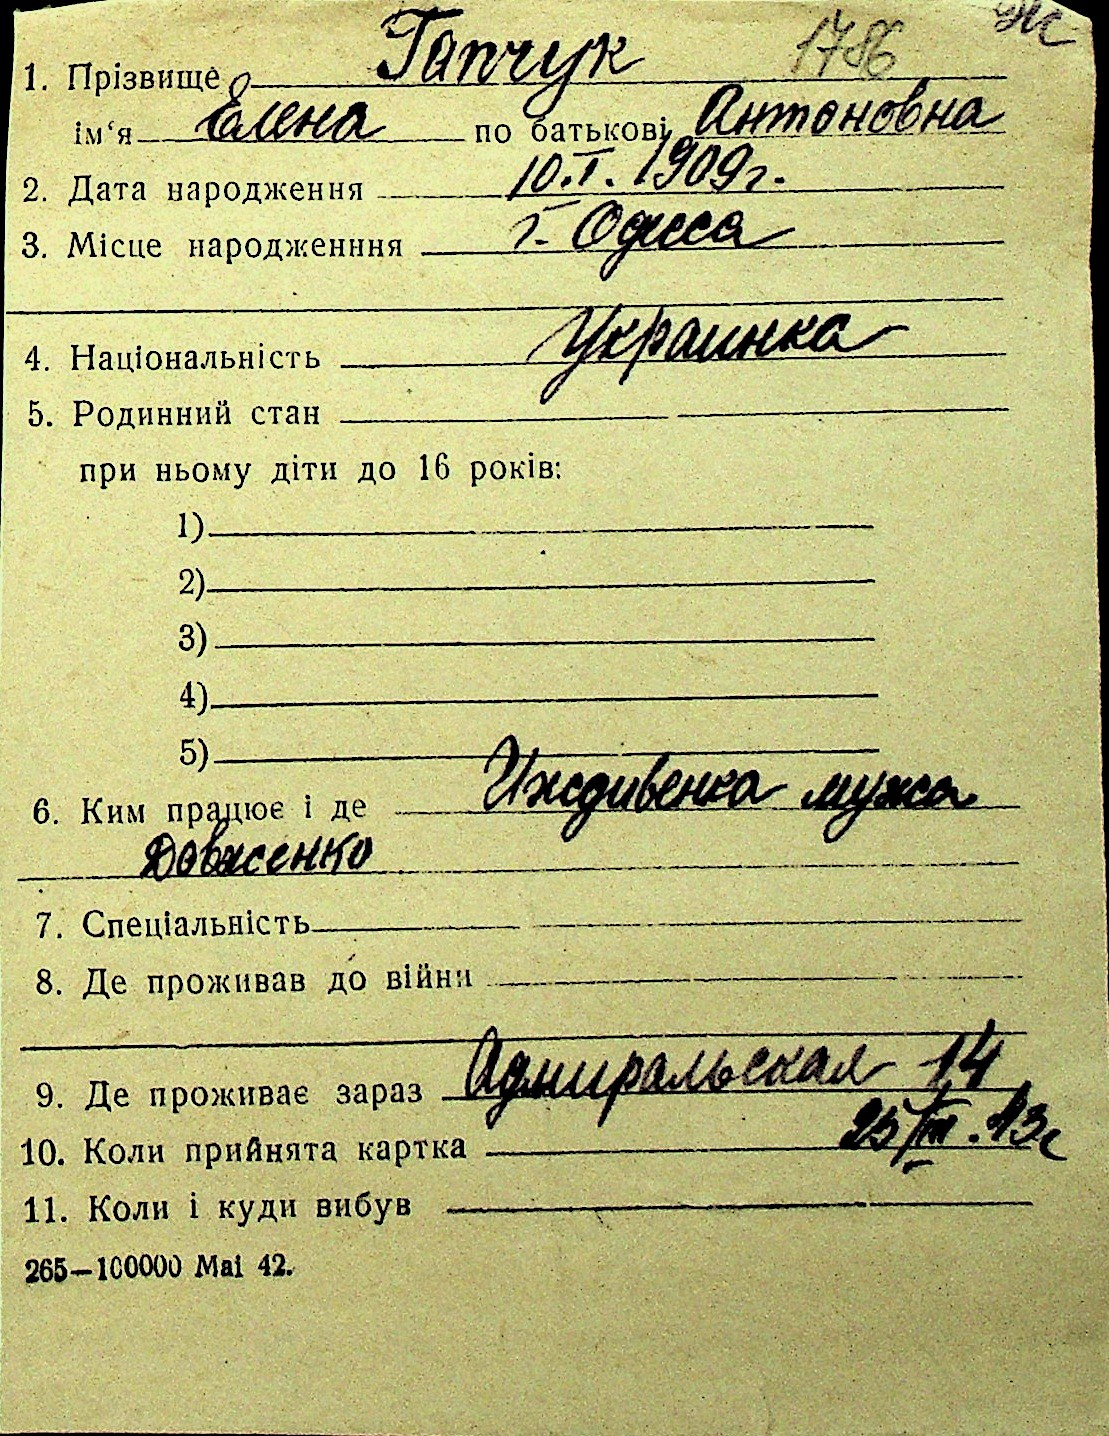 1. Прізвище Гапчук 1786
ім‘я Елена по батькові Антоновна
2. Дата народження 10.I.1909 г.
3. Місце народженння г. Одесса
4. Національність Украинка
5. Родинний стан
при ньому діти до 16 років:
1)
2)
3)
4)
5)
6. Ким працює і де Иждивенка мужа
Довженко
7. Спеціальність
8. Де проживав до війни
9. Де проживає зараз Адмиральская 14
10. Коли прийнята картка 25/III.43 г
11. Коли і куди вибув
265—100000 Mai 42.